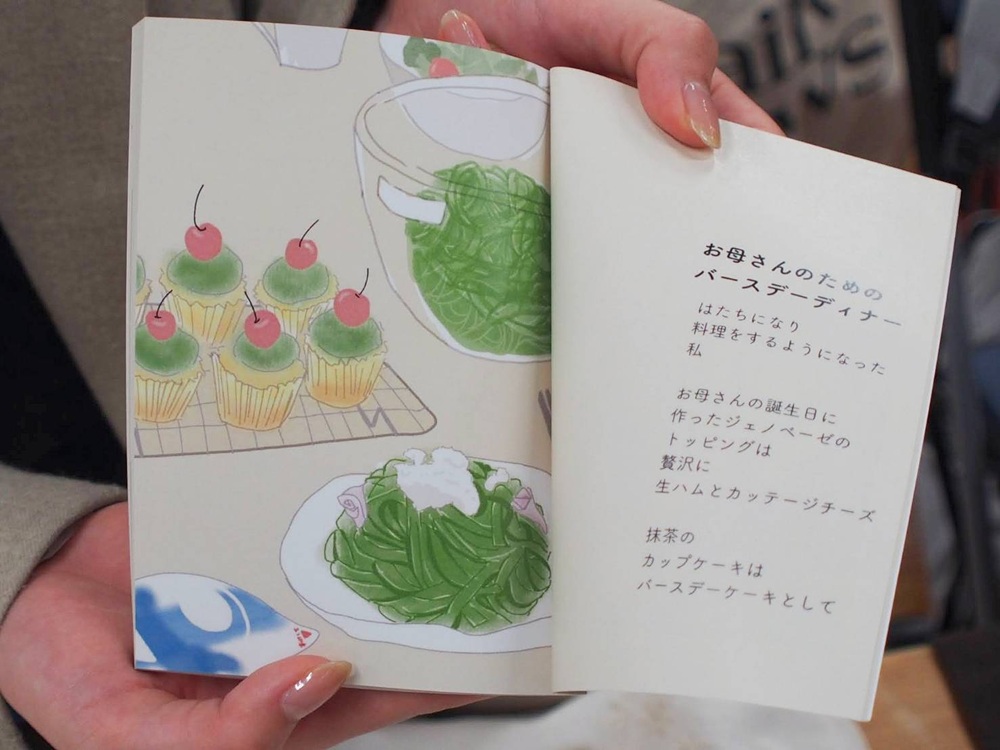 お母さんのための
バースデーディナー
はたちになり
料理をするようになった
私
お母さんの誕生日に
作ったジェノベーゼの
トッピングは
贅沢に
生ハムとカッテージチーズ
抹茶の
カップケーキは
バースデーケーキとして